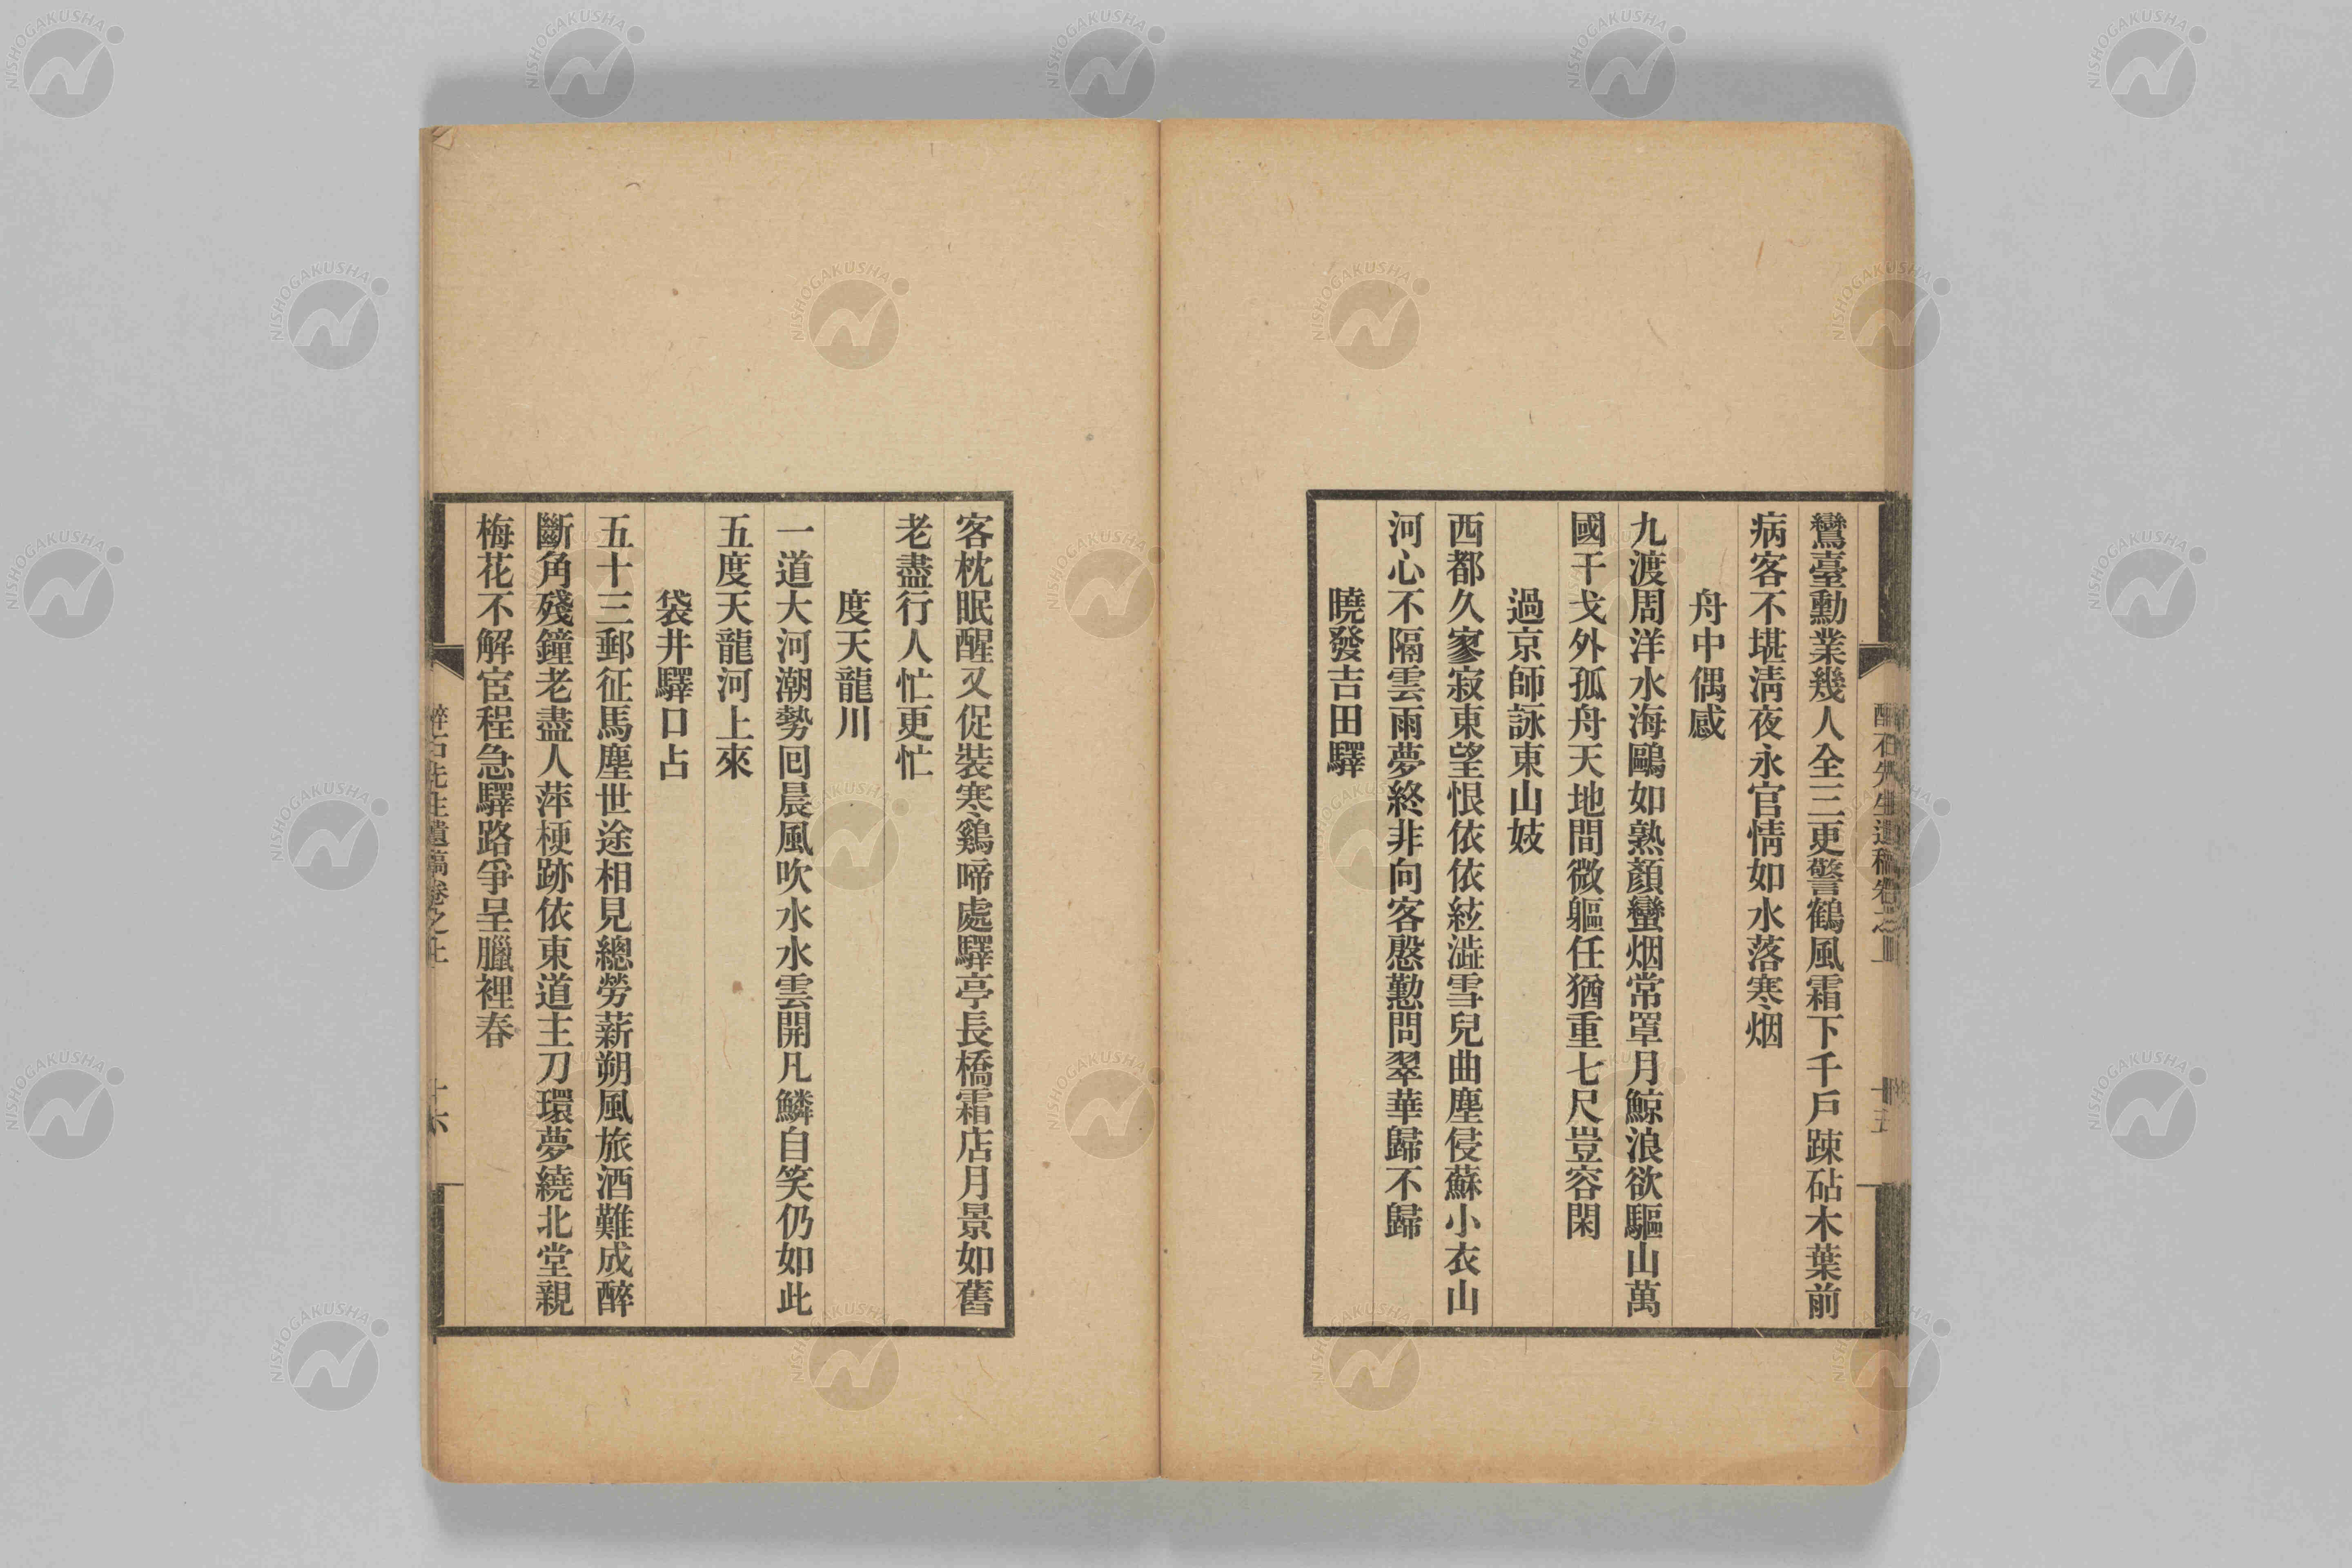 鸞臺勳業幾人全三更警鶴風霜下千戶踈砧木葉前
病客不堪淸夜永官情如水落寒烟
舟中偶感
九渡周洋水海鷗如熟顏蠻烟常罩月鯨浪欲驅山萬
國干戈外孤舟天地間微軀任猶重七尺豈容閑
過京師詠東山妓
西都久寥寂東望恨依依絃澁雪兒曲塵侵蘇小衣山
河心不隔雲雨夢終非向客慇懃問翠華歸不歸
曉發吉田驛
醉石先生遺稿卷之上
十五
客枕眠醒又促裝寒鷄啼處驛亭長橋霜店月景如舊
老盡行人忙更忙
度天龍川
一道大河潮勢回晨風吹水水雲開凡鱗自笑仍如此
五度天龍河上來
袋井驛口占
五十三郵征馬塵世途相見總勞薪朔風旅酒難成醉
斷角殘鐘老盡人萍梗跡依東道主刀環夢繞北堂親
梅花不解宦程急驛路爭呈臘裡春
醉石先生遺稿卷之上
十六
NISHOGAKUSHA